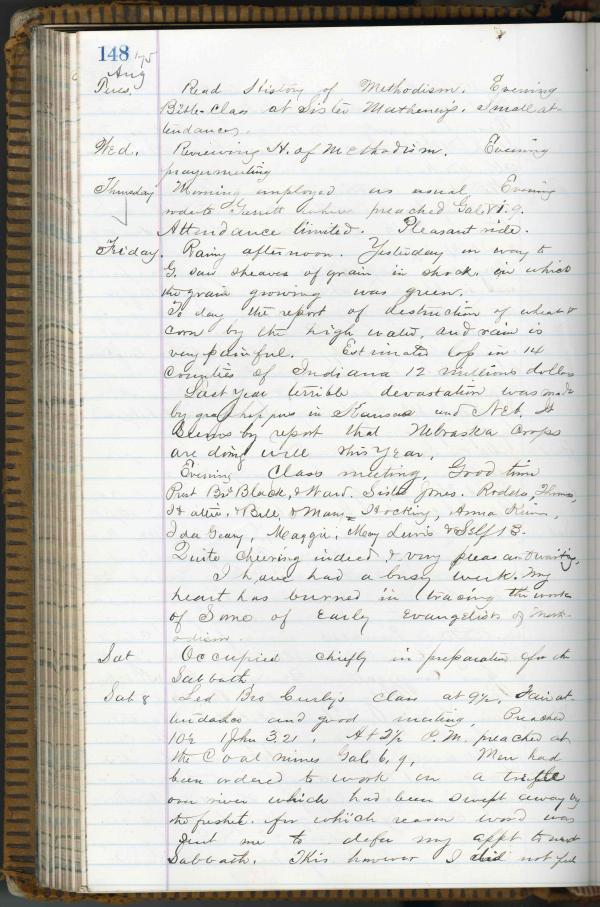 148 '75
Aug
Tues. Read History of Methodism. Evening
Bible-Class at Sister Matheney's. Small at-
tendance.
Wed. Reviewing H. of Methodism. Evening
prayermeeting
Thursday Morning employed as usual, Evening
rode to Garrett where preached Gal. 6.9.
Attendance limited. Pleasant ride.
Friday. Rainy afternoon. Yesterday on way to
G. saw sheaves of grain in shock, in which
the grain growing was green.
To day the report of destruction of wheat &
corn by the high water, and rain is
very painful. Estimated loss in 14
counties of Indiana 12 millions dollars
Last year terrible devastation was made
by grasshoppers in Kansas and Neb. It
seems by report that Nebraska crops
are doing well this year.
Evening Class meeting, Good time
Prest Bro Black, & Ward. Sister Jones. Thomas,
Hattie, & Bell, & Hocking, Anna
Ida Geary, Maggie, Mary Lewis & Self 13.
Quite cheering indeed & very pleasant
I have had a busy week. My
heart has burned in tracing the work
of Some of Early Evangelists of Meth-
odism.
Sat Occupied chiefly in preparation for the
Sabbath.
Sab 8 Led Bro Curly's class at 9½, Fair at-
tendance and good meeting, Preached
10½ 1 John 3.21. At 2½ P.M. preached at
the Coal mines Gal. 6.9. Men had
been ordered to work on a
our river which had been swept away by
the freshet. for which reason word was
sent me to defer my appt to next
Sabbath. This however I did not feel